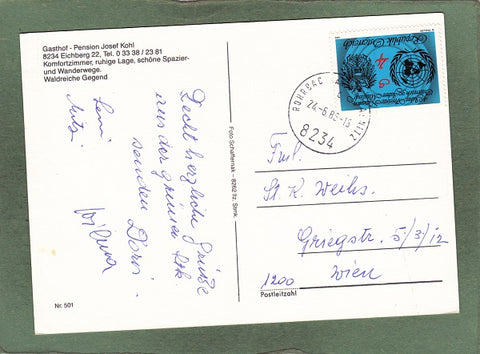 Gasthof - Pension Josef Kohl
8234 Eichberg 22, Tel. 0 33 38 / 23 81
Komfortzimmer, ruhige Lage, schöne Spazier-
und Wanderwege.
Waldreiche Gegend
Recht herzliche Grüße
aus der grünen Stk.
senden Doris
Nr. 501
Foto Schafternak – 8262 Ilz. Stmk.
Republik Österreich
S 4
24.-6.86-15
8234
Frl.
St. R. Weihs.
Griegstr. 5/3/12
1200 Wien
Postleitzahl